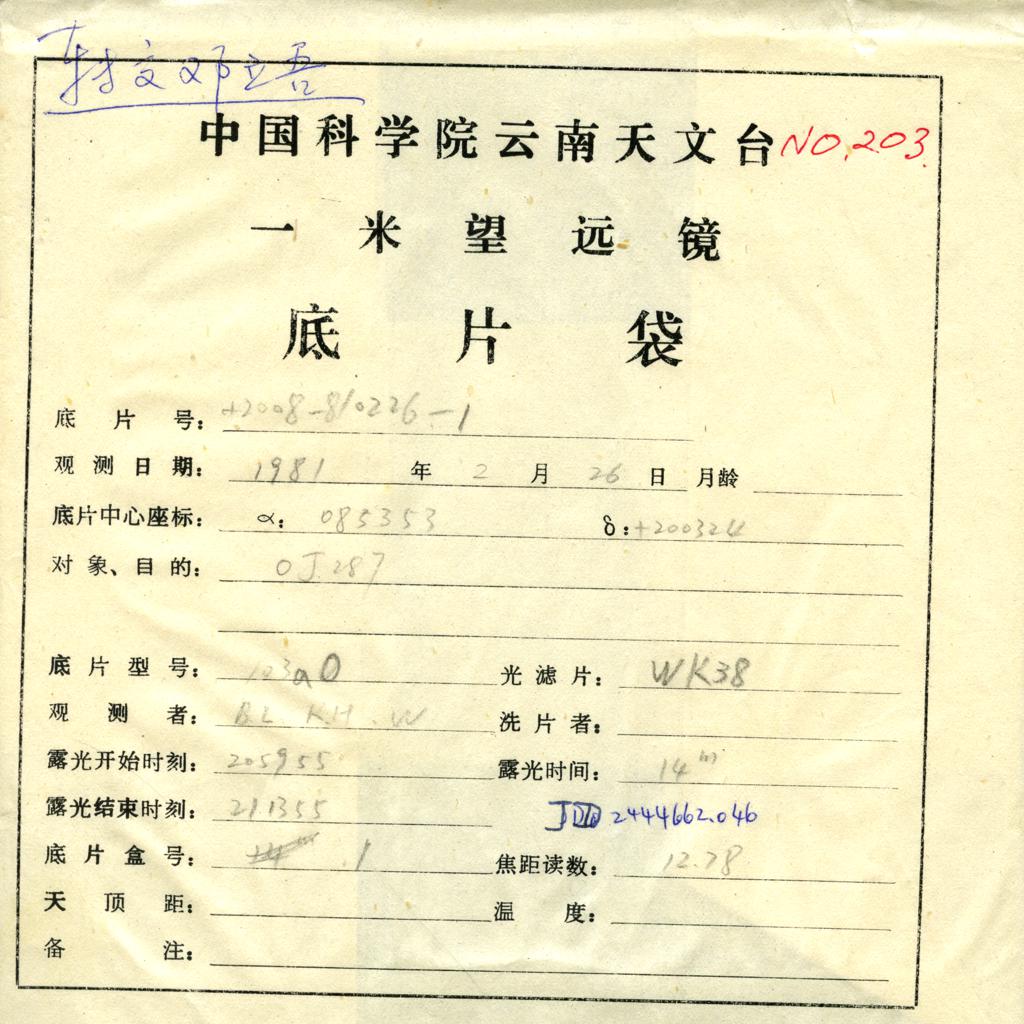 中国科学院云南天文台 NO.203.
一米望远镜
底片袋
底片号: +2008-810226-1
观测日期: 1981 年 2 月 26 日 月龄
底片中心座标: α: 085353 δ: +200324
对象、目的: OJ 287
底片型号: 103aO 光滤片: WK38
观测者: BL KH. W 洗片者:
露光开始时刻: 205955 露光时间: 14m
露光结束时刻: 211355 JD 2444662.046
底片盒号: 1 焦距读数: 12.78
天顶距: 温度:
备注: